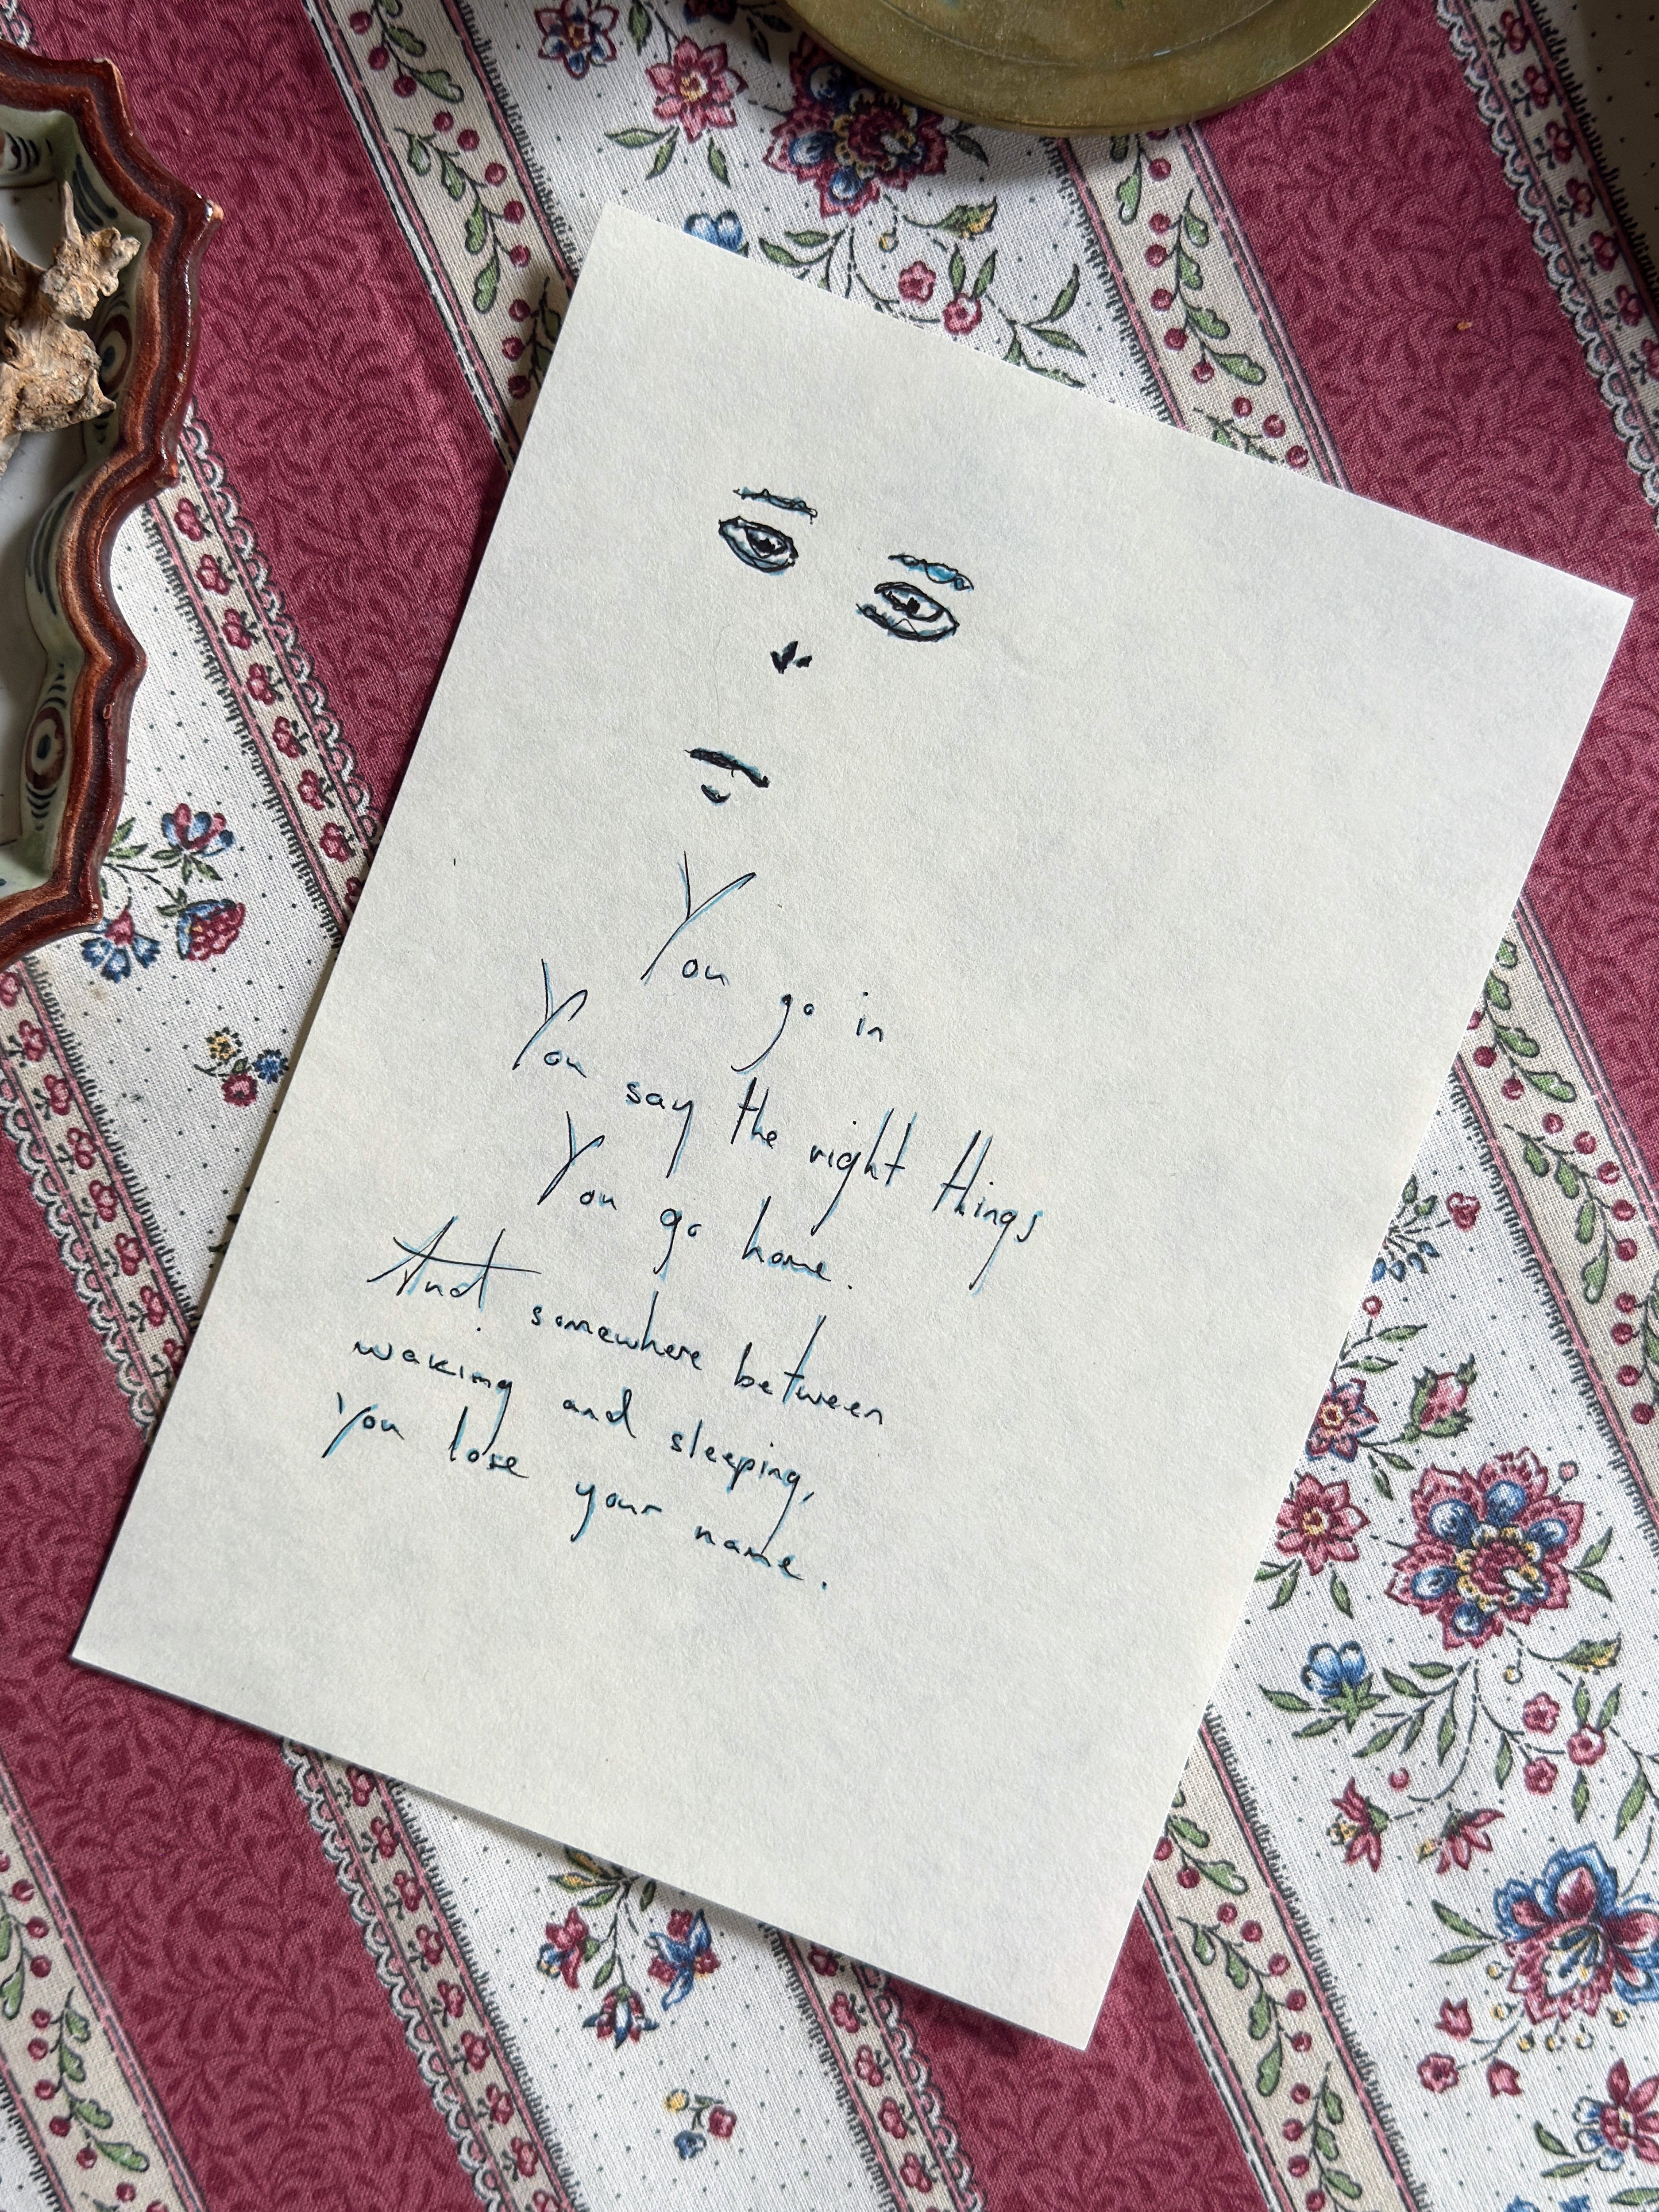 You go in
You say the right things
You go home.
And somewhere between
waking and sleeping,
you lose your name.